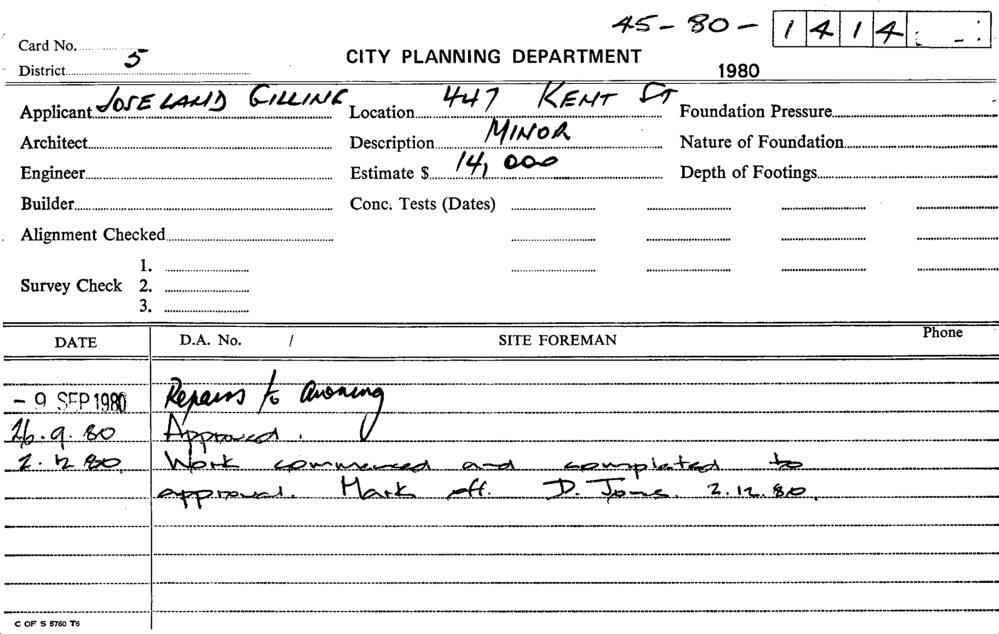 45-80-1414
Card No.
District 5
CITY PLANNING DEPARTMENT
1980
Applicant JOSELAND GILLING Location 447 KENT ST Foundation Pressure
Architect Description MINOR Nature of Foundation
Engineer Estimate $ 14,000 Depth of Footings
Builder Conc. Tests (Dates)
Alignment Checked
1.
Survey Check 2.
3.
DATE D.A. No. / SITE FOREMAN Phone
- 9 SEP 1980 Repairs to awning
26.9.80 Approved.
2.12.80 Work commenced and completed to
approval. Mark off. D. Jones. 2.12.80.
C OF S 5760 T6